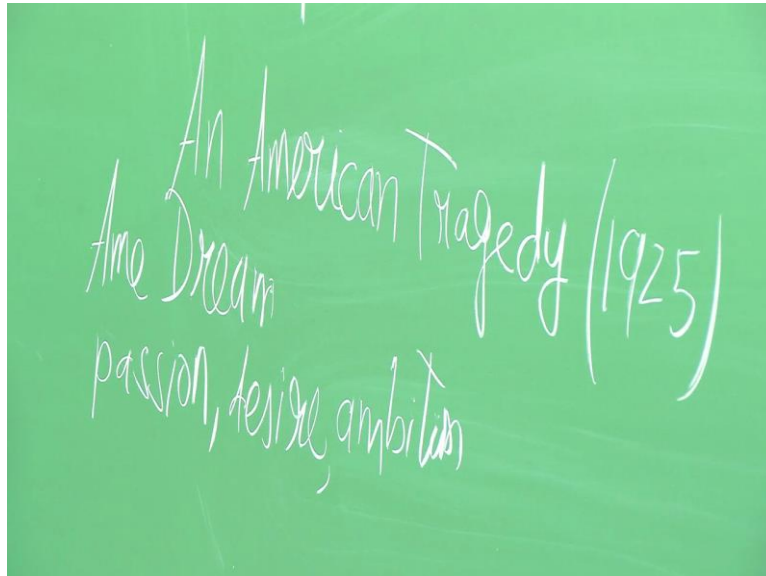 An American Tragedy (1925)
Ame Dream
passion, desire, ambition